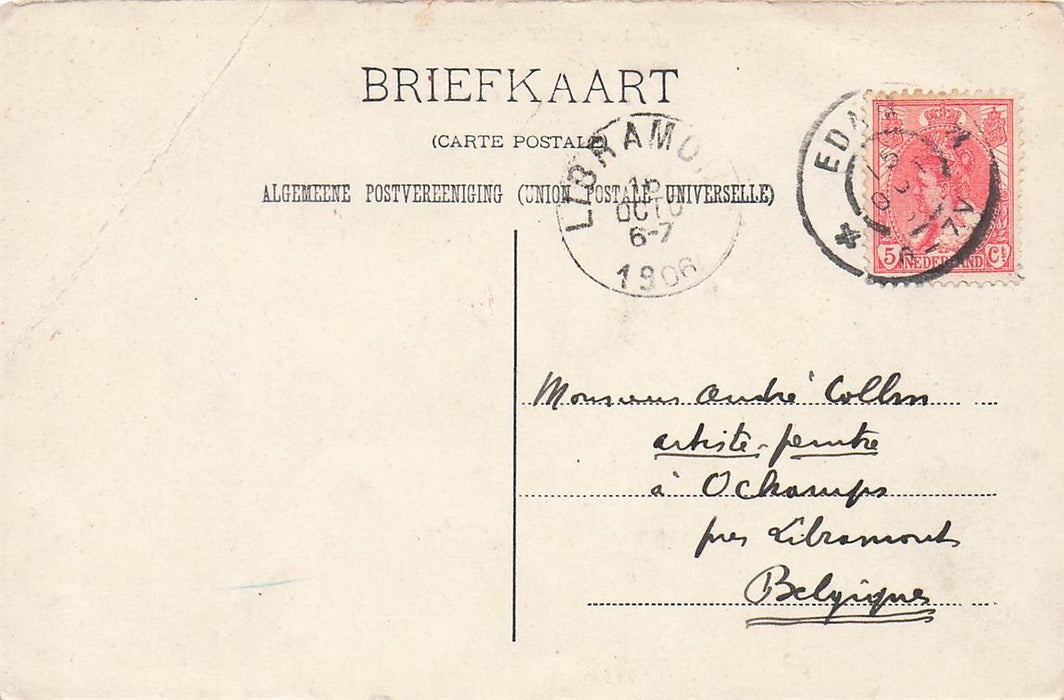 BRIEFKAART
(CARTE POSTALE)
ALGEMEENE POSTVEREENIGING (UNION POSTALE UNIVERSELLE)
LIBRAMO
OCTO
6-7
1906
EDA
15
5 NEDERLAND Ct
Monsieur André Collin
artiste-peintre
à Ochamps
près Libramont
Belgique